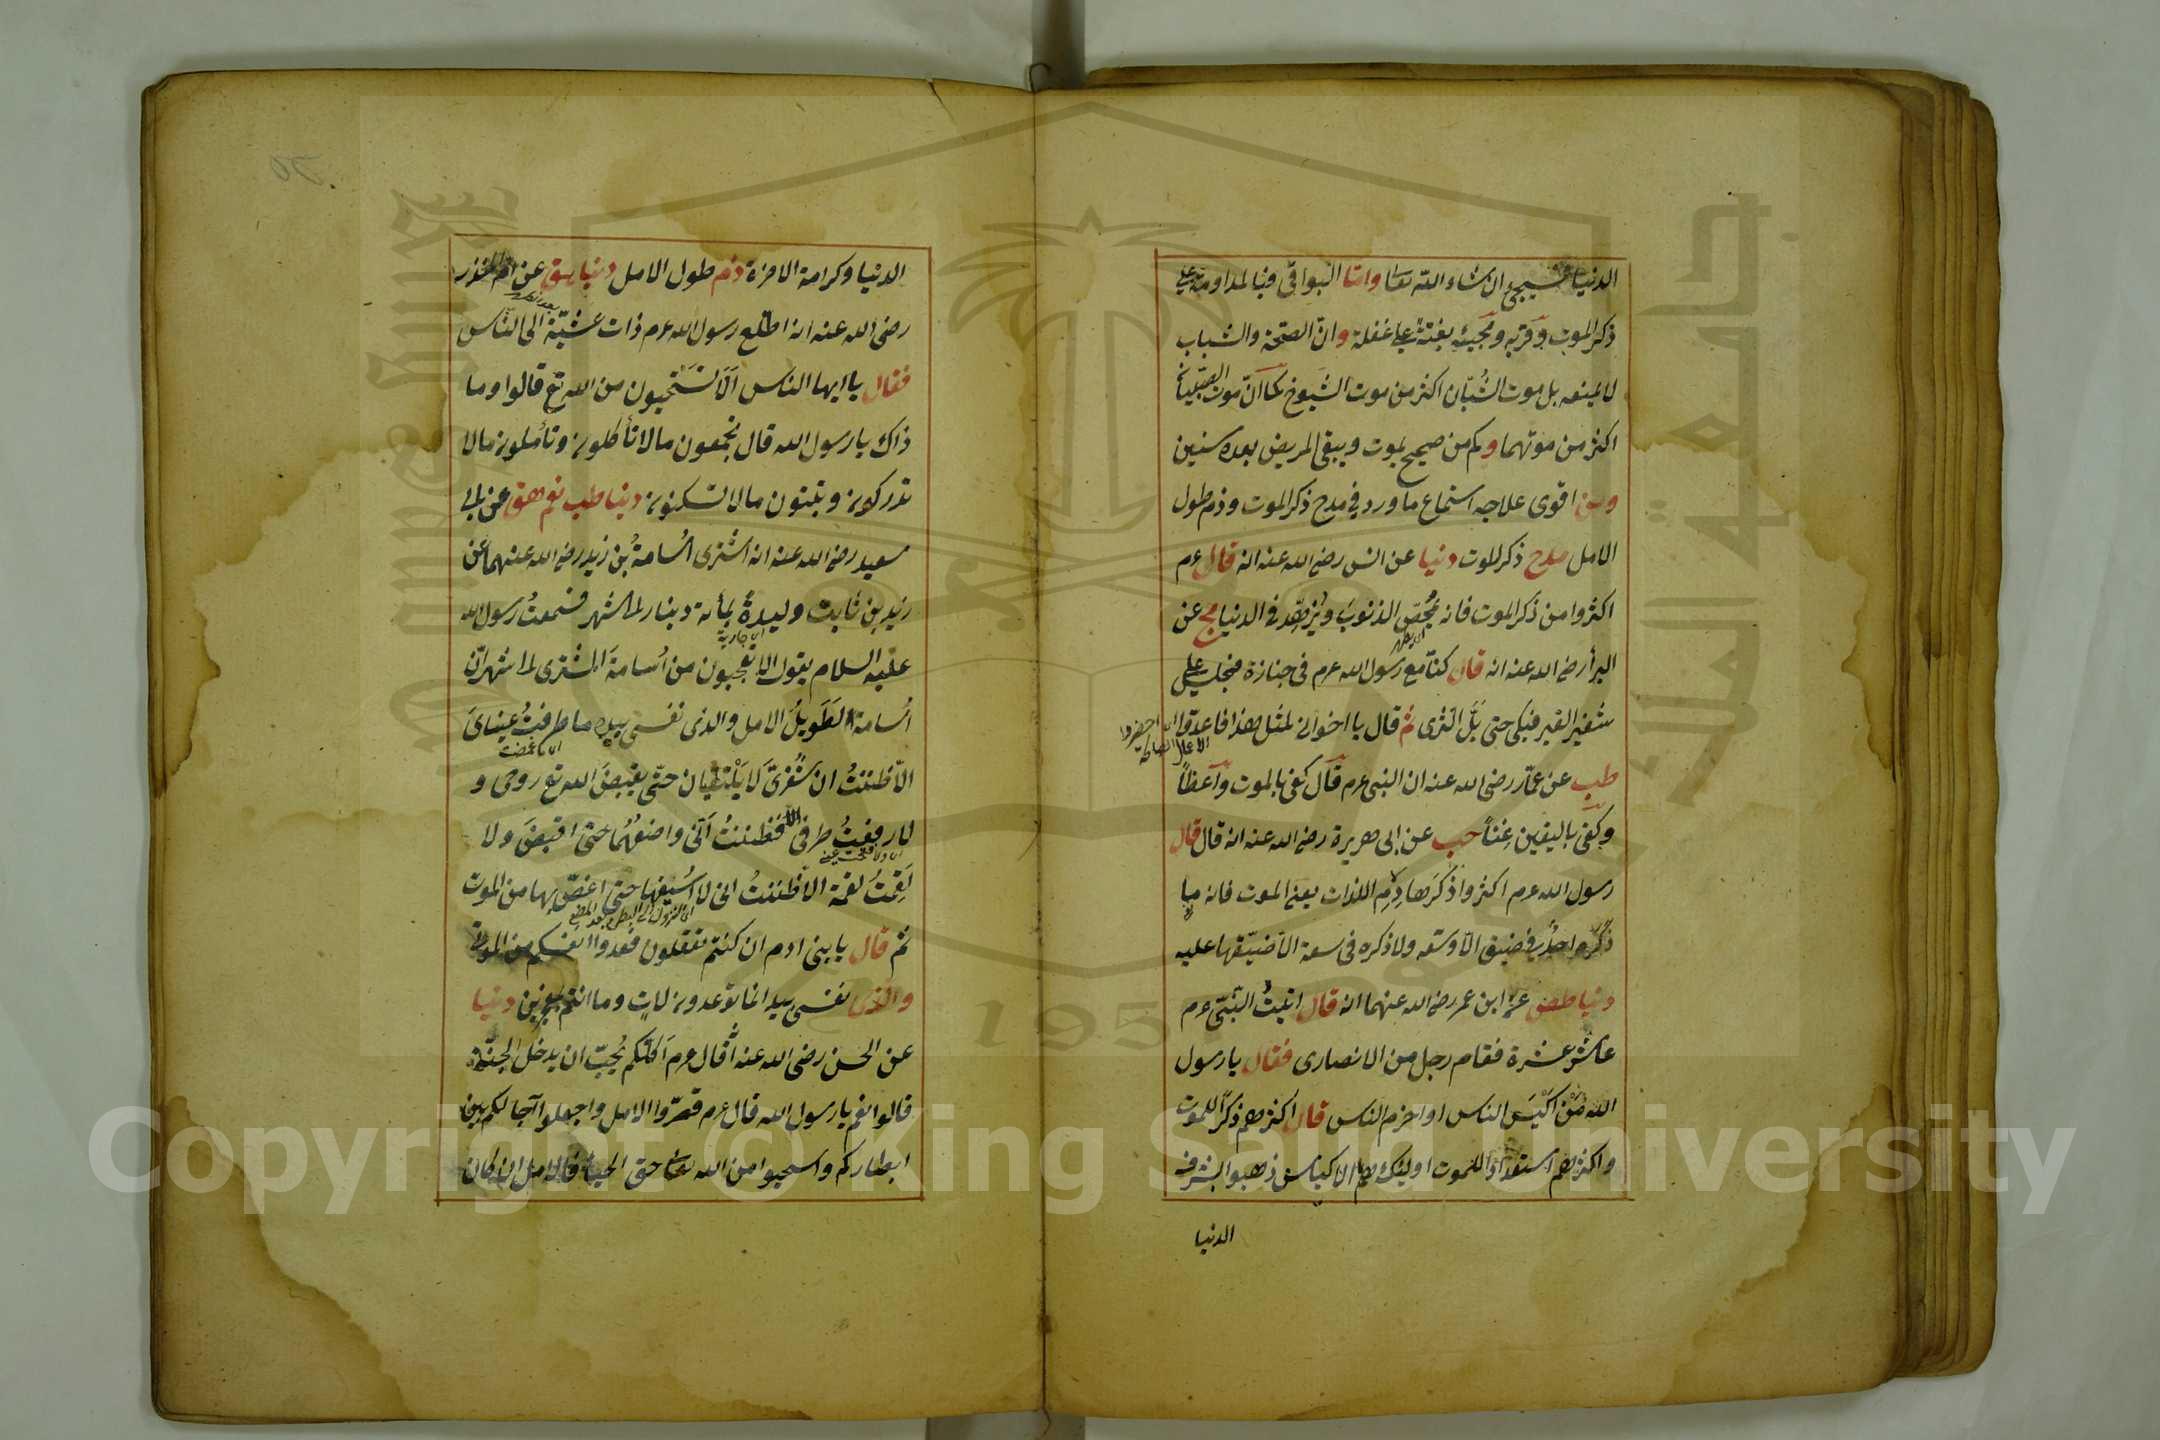 الدنيا فسيجئ ان شاء الله تعا واما البواقى فبالمداومة على
ذكر الموت وقربه ومجيئه بغتة على غفلة وان الصحة والشباب
لا يمنعه بل موت الشبان اكثر من موت الشيوخ كما ان موت الصبيان
اكثر من موتهما وكم من صحيح يموت ويبقى المريض بعده سنين
ومن اقوى علاجه استماع ما ورد في مدح ذكر الموت وذم طول
الامل مدح ذكر الموت دنيا عن انس رضى الله عنه انه قال عم
اكثروا من ذكر الموت فانه يمحص الذنوب ويزهد فى الدنيا مج عن
اى يطهر
البرأ رضى الله عنه انه قال كنا مع رسول الله عم فى جنازة فجلس على
شفير القبر فبكى حتى بل الثرى ثم قال يا اخوانى لمثل هذا فاعدوا
اى احضروا الاعمال الصالحة
طب عن عمار رضى الله عنه ان النبى عم قال كفى بالموت واعظاً
وكفى باليقين غناً حب عن ابى هريرة رضى الله عنه انه قال قال
رسول الله عم اكثروا ذكر هادم اللذات يعنى الموت فانه ما
ذكره احد في ضيق الا وسعه ولا ذكره فى سعة الا ضيقها عليه
دنيا طص عن ابن عمر رضى الله عنهما انه قال اتيت النبى عم
عاشر عشرة فقام رجل من الانصارى فقال يا رسول
الله من اكيس الناس واحزم الناس قال اكثرهم ذكراً للموت
واكثرهم استعداداً للموت اولئك هم الاكياس ذهبوا بشرف
الدنيا
الدنيا وكرامة الاخرة ذم طول الامل دنيا هق عن ام المنذر
رضى الله عنه انه اطلع رسول الله عم ذات عشية الى الناس
فقال يا ايها الناس الا تستحيون من الله تع قالوا وما
ذاك يا رسول الله قال تجمعون مالا تأكلون وتأملون مالا
تدركون وتبنون مالا تسكنون دنيا طب نعم هق عن ابى
سعيد رضى الله عنه انه اشترى اسامة بن زيد رضى الله عنهما عن
زيد بن ثابت وليدة بمأنة دينار الى شهر فسمعت رسول الله
اى جارية
عليه السلام يقول الا تعجبون من اسامة المشترى الى شهر ان
اسامة لطويل الامل والذى نفسى بيده ما طرفت عيناى
اى غمضت
الا ظننت ان شفرى لا يلتقيان حتى يقبض الله تع روحى و
لا رفعت طرفى الا فظننت انى واضعهما حتى اقبض ولا
لقمت لقمة الا ظننت انى لا اسيغها حتى اغص بها من الموت
ثم قال يا بنى ادم ان كنتم تعقلون فعدوا انفسكم من الموتى
والذى نفسى بيده انما توعدون لات وما انتم بمعجزين دنيا
عن الحسن رضى الله عنه انه قال عم اكلكم يحب ان يدخل الجنة
قالوا نعم يا رسول الله قال عم قصروا الامل واجعلوا آجالكم بين
ابصاركم واستحيوا من الله تعا حق الحياء فالامل ان كان
Copyright © King Saud University